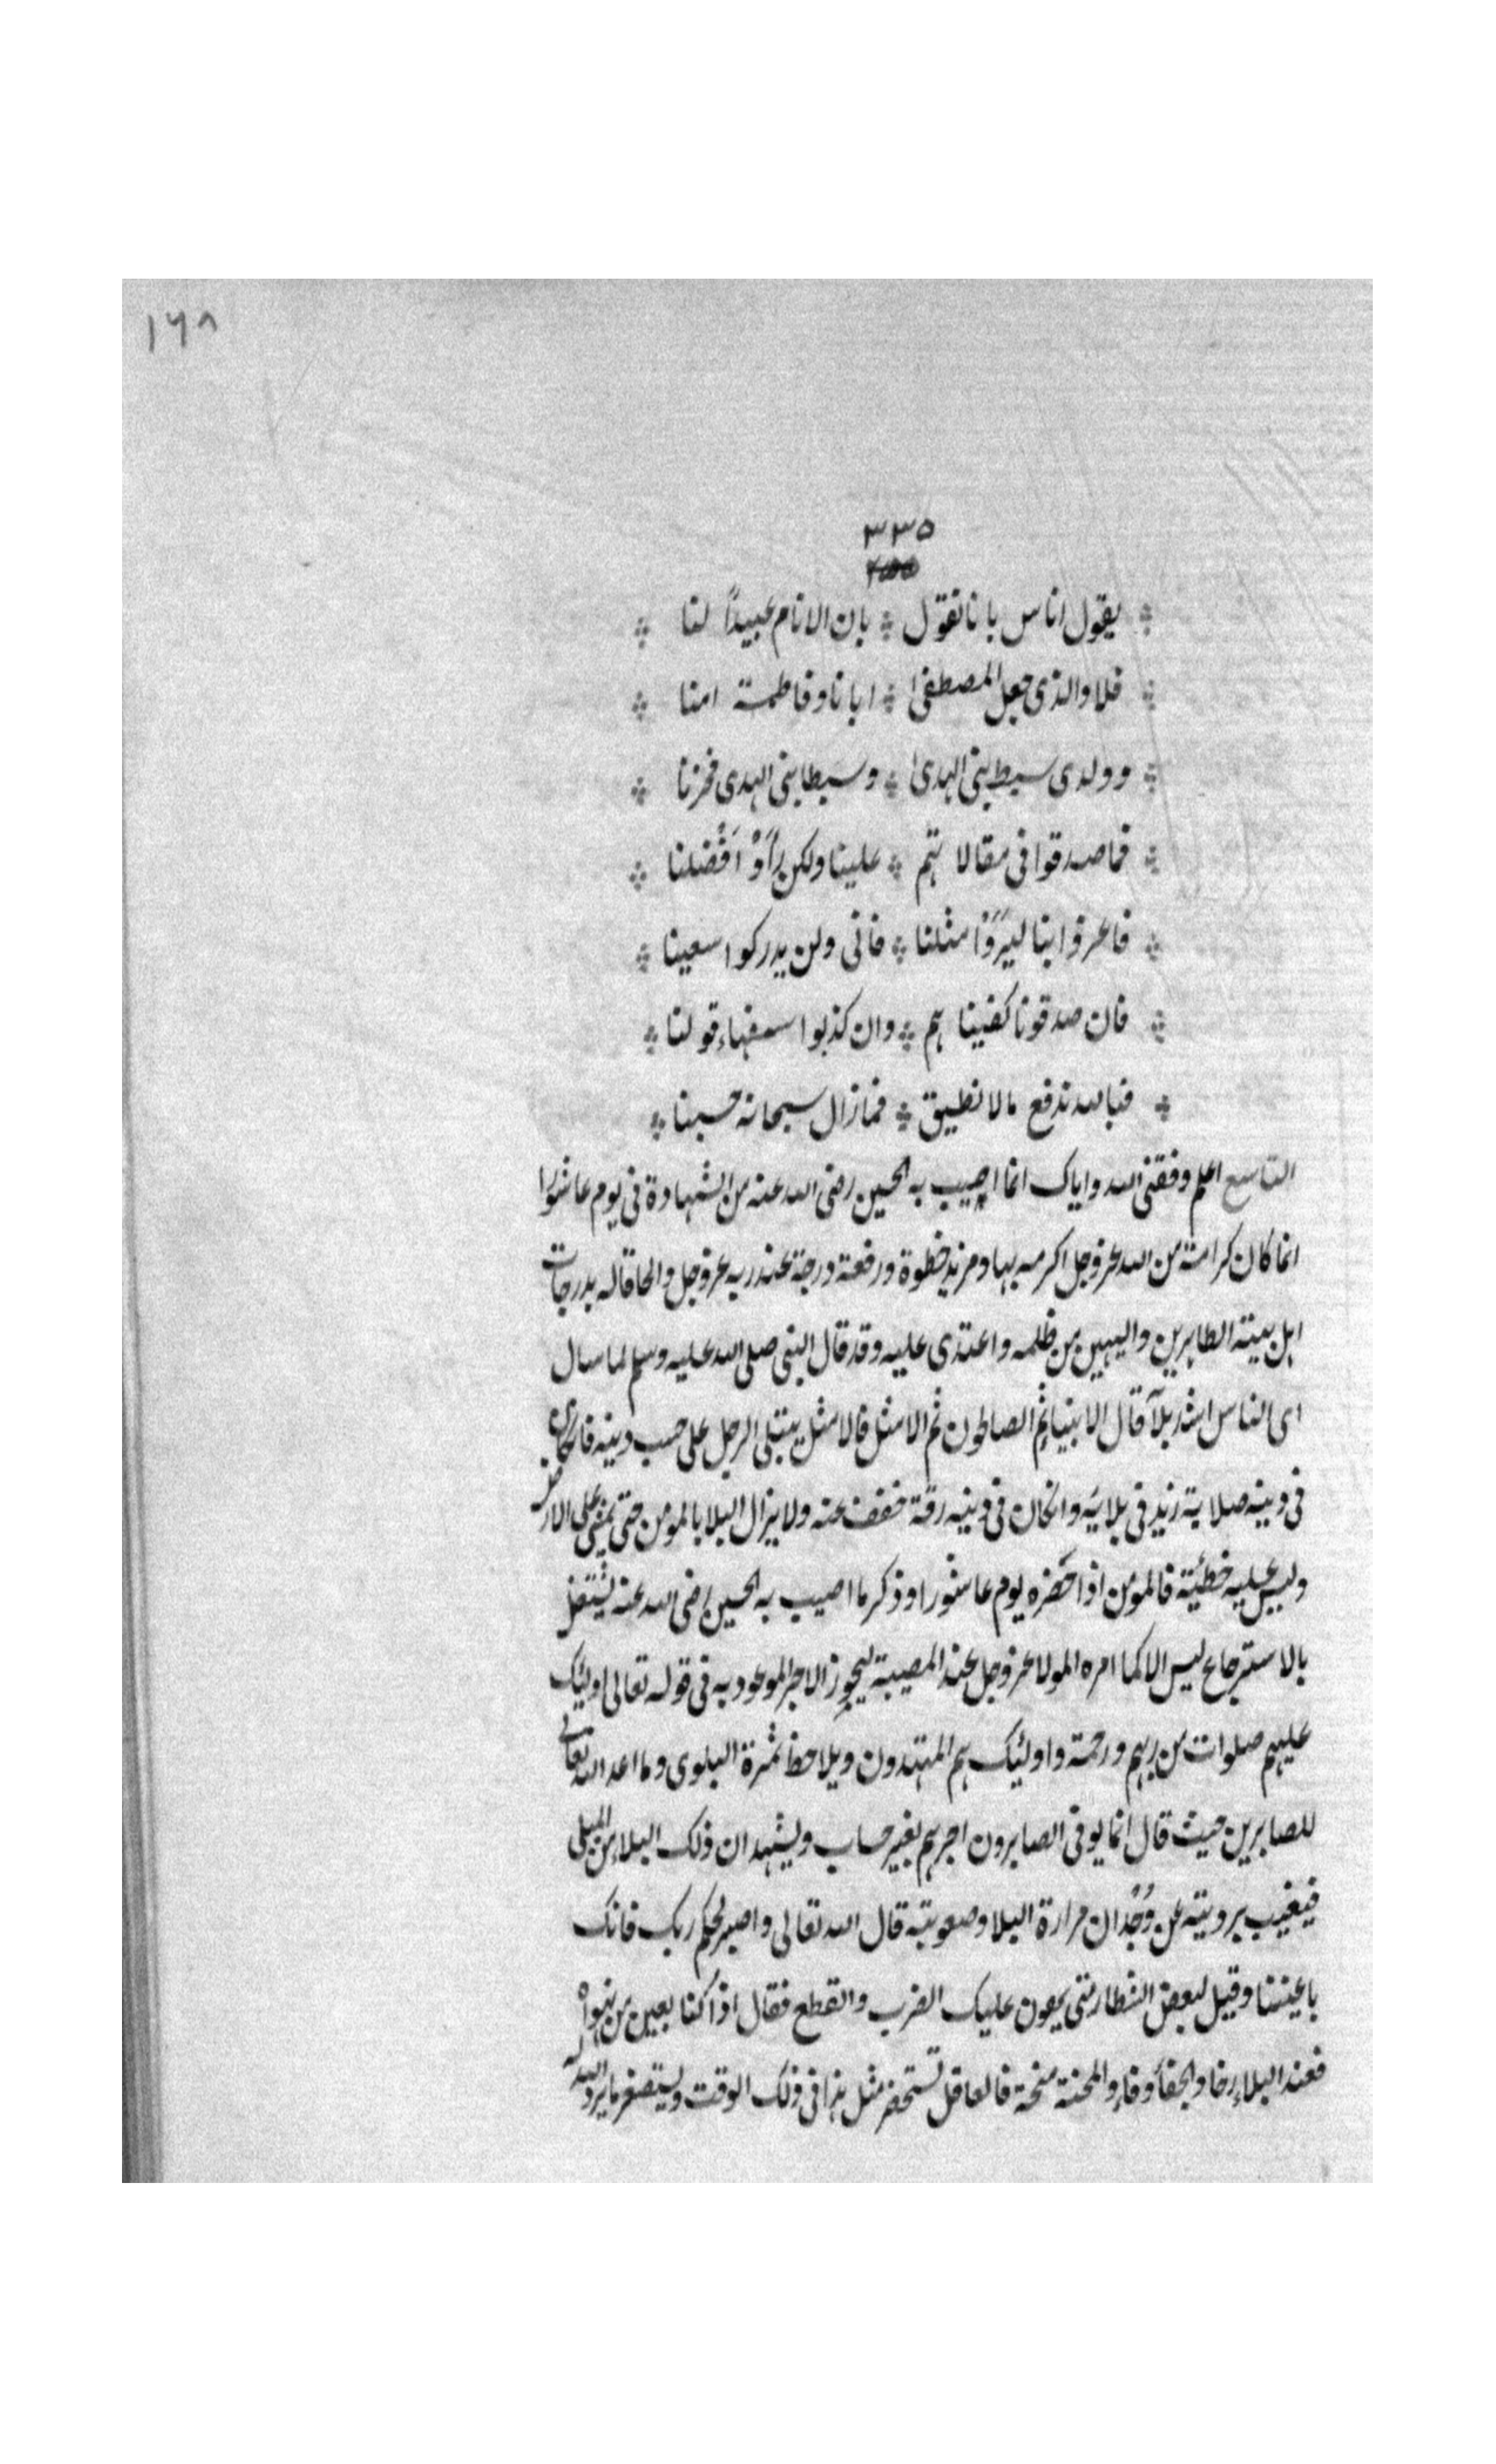 ١٦٨
٣٣٥
يقول اناس بانا نقول ∴ بان الانام عبيداً لنا
فلا والذى جعل المصطفىٰ ∴ ابانا وفاطمة امنا
وولدى سبط بنى الهدىٰ ∴ وسبطا بنى الهدى فخرنا
فما صدقوا فى مقالاتهم ∴ علينا ولكن رأَوْا فْضلنا
فاعرفوا بنا ليَرَوْا مثلنا ∴ فانى ولن يدركوا سعينا
فان صدقونا كفيناهم ∴ وان كذبوا سفهاء قولنا
فبالله ندفع مالا نطيق ∴ فمازال سبحانه حسبنا
التاسع اعلم وفقنى الله واياك انما اصيب به الحسين رضى الله عنه من الشهادة فى يوم عاشورا
انما كان كرامة من الله عزوجل اكرمه بها ومزيد حظوة ورفعة درجة عند ربه عزوجل والحاقا له بدرجات
اهل بيته الطاهرين واليهين من ظلمه واعتدى عليه وقد قال النبى صلى الله عليه وسلم لما سال
اى الناس اشد بلآ قال الانبيا ثم الصالحون ثم الامثل فالامثل يبتلى الرجل على حسب دينه فان كان
فى دينه صلابة زيد فى بلائه وانكان فى دينه رقة خفف عنه ولا يزال البلا بالمومن حتى يمشى على الارض
وليس عليه خطئية فالمومن اذا حَضَره يوم عاشورا وذكر ما اصيب به الحسين رضى الله عنه يشتغل
بالاسترجاع ليس الا كما امره المولا عزوجل عند المصيبة ليحوز الاجر الموعود به فى قوله تعالى اولئك
عليهم صلوات من ربهم ورحمة واولئك هم المهتدون ويلاحظ ثمرة البلوى وما اعد الله تعالى
للصابرين حيث قال انما يوفى الصابرون اجرهم بغير حساب ويشهد ان ذلك البلاء من المبلى
فيغيب برويته عن وُجْدان مرارة البلا وصعوبته قال الله تعالى واصبر لحكم ربك فانك
باعيننا وقيل لبعض الشطار متى يهون عليك الضرب والقطع فقال اذا كنا بعين من نهواه
فعند البلاء رخا والجفأ وفاء والمحنة منحة فالعاقل تستحضر مثل هذا فى ذلك الوقت ويستصغر ما يرد